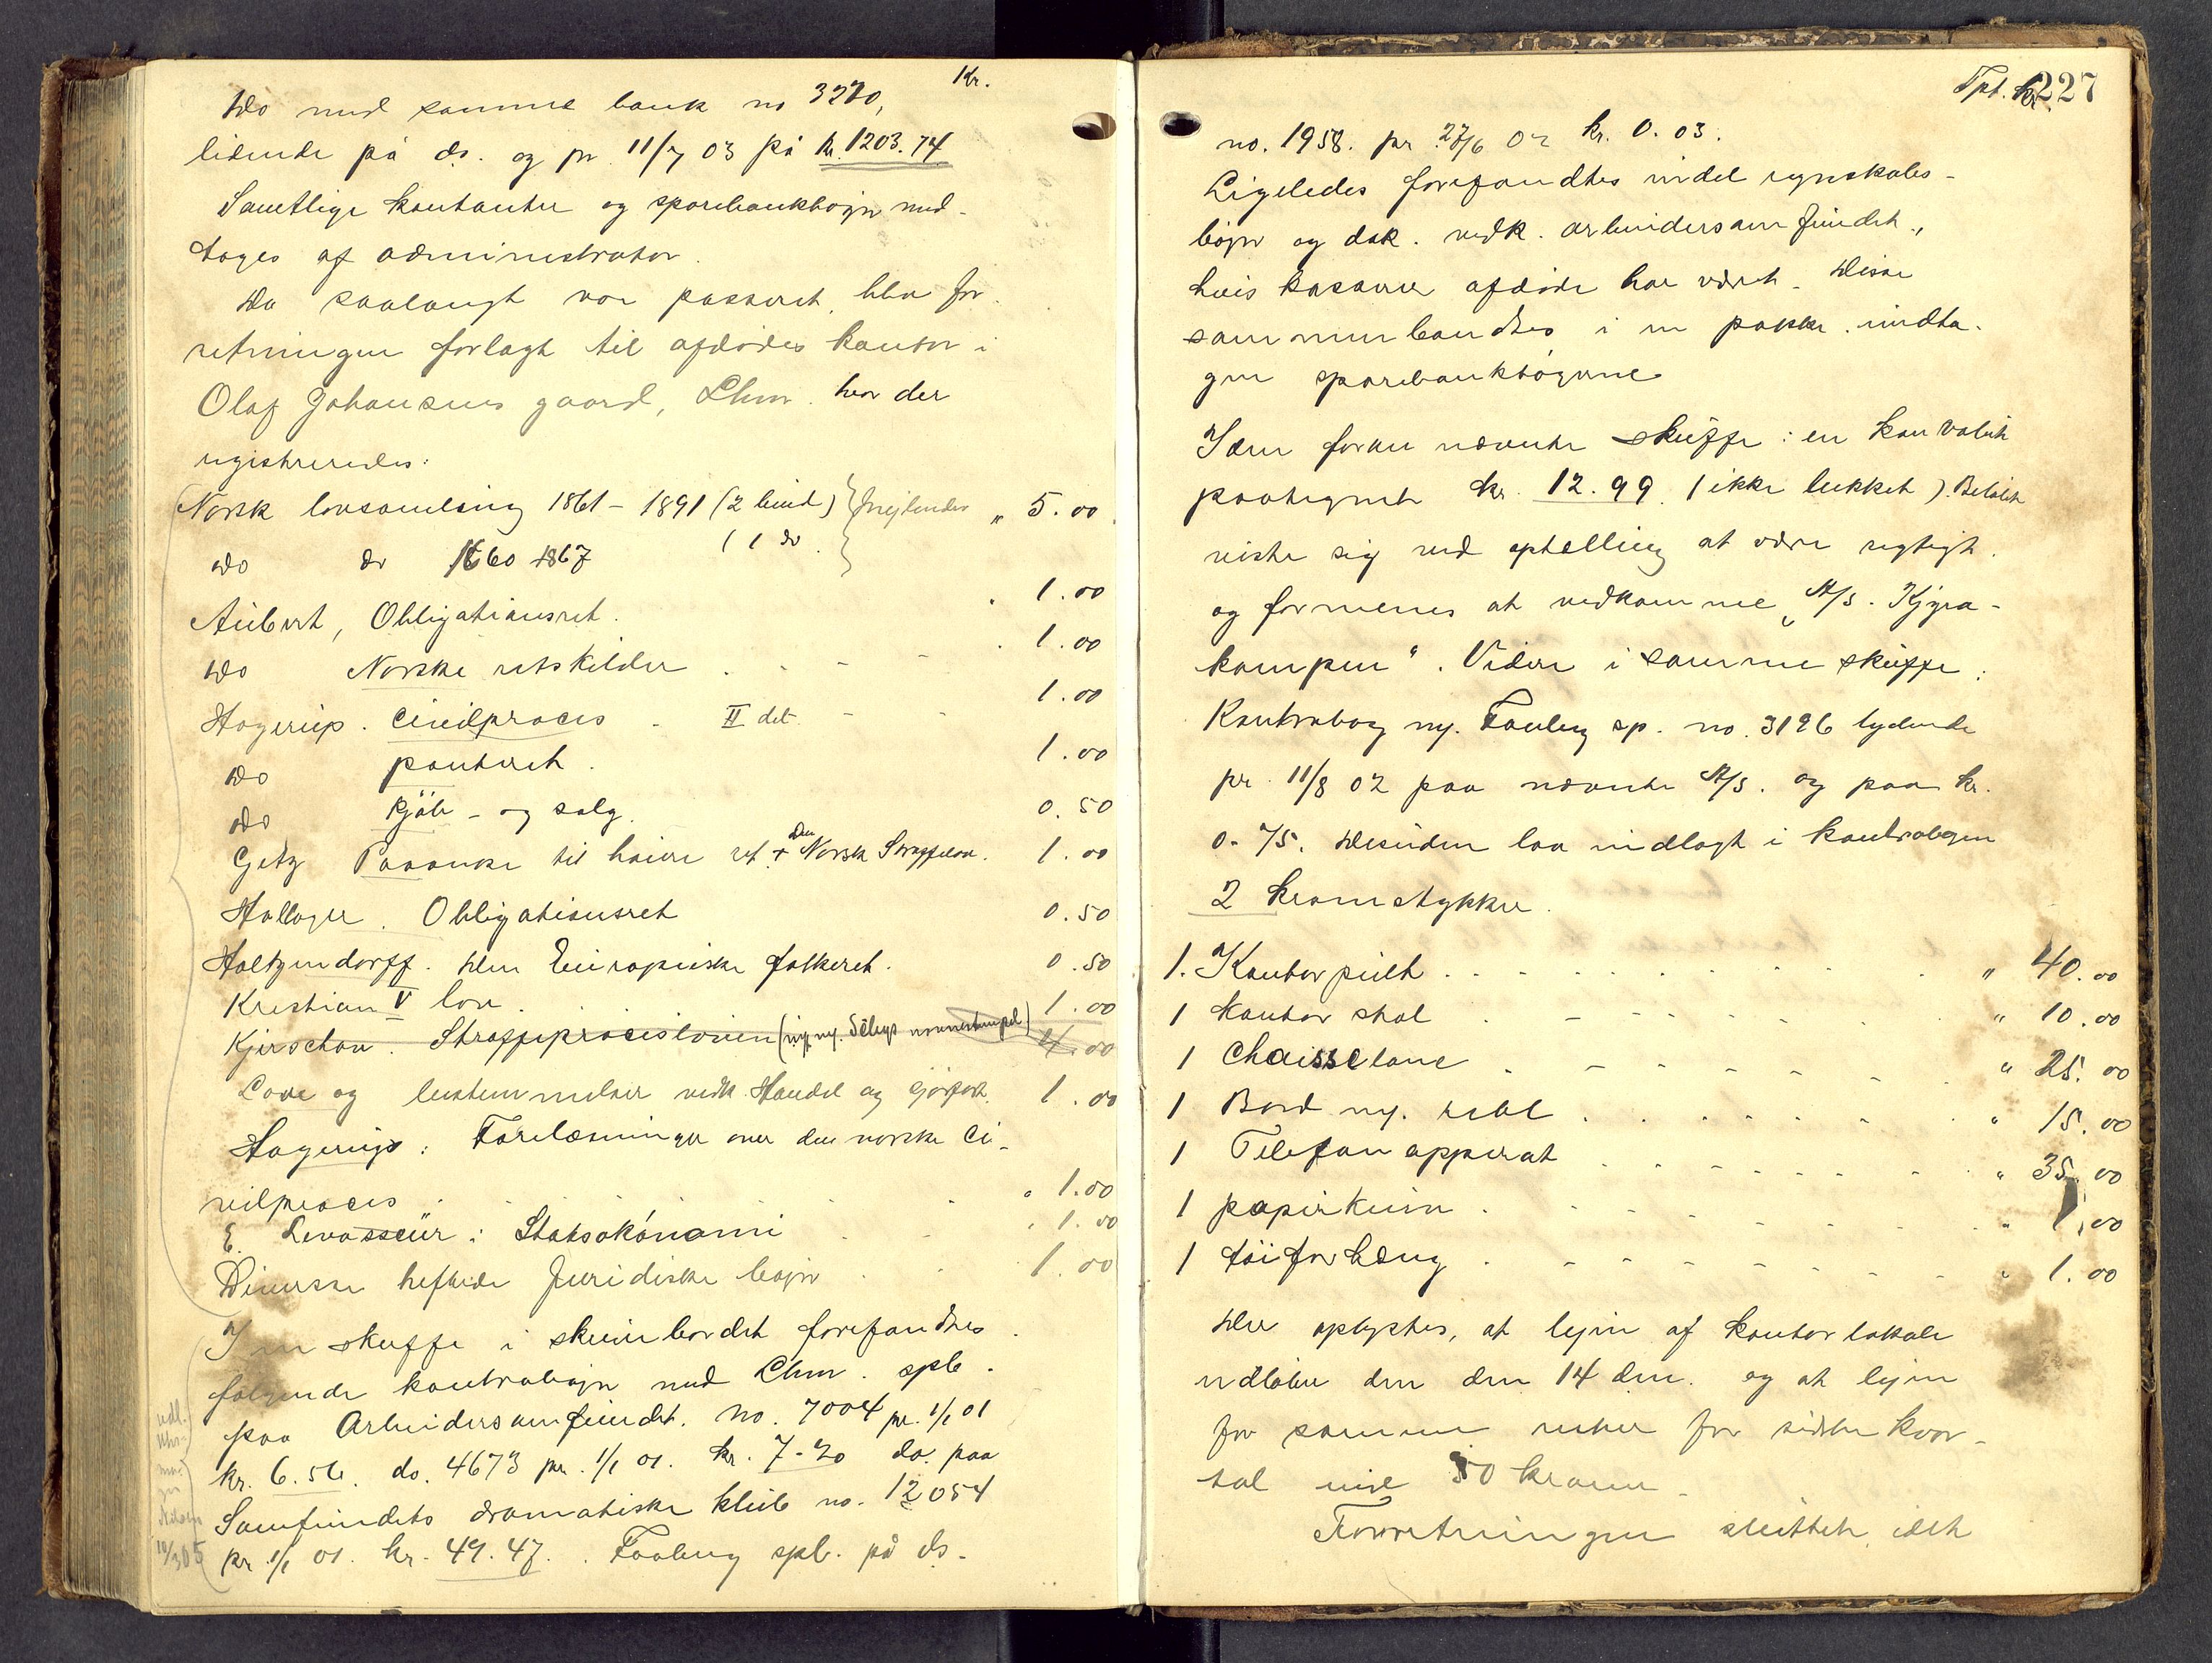 Kr.
Do med samme bank no 3270,
lidende på do. og pr 11/7 03 på kr. 1203.74
Samtlige kontanter og sparebankbøger med-
tages af administrator.
Da saalangt var passeret, blev for-
retningen forlagt til afdødes kontor i
Olaf Johansens gaard, Lhm. hvor der
registreredes:
Norsk lovsamling 1861 - 1891 (2 bind) " 5.00
do do 1660 1867 (1 do
Aubert, Obligationsret. 1.00
do Norske retskilder 1.00
Hagerup. Civilproces II det 1.00
do panteret. 1.00
do kjøb - og salg. 0.50
Getz Paaanke til høiere ret + Den Norsk Straffelov. 1.00
Hallager. Obligationsret 0.50
Holtzendorff. Den Europæiske folkeret. 0.50
Kristian V lov. 1.00
Kjerschow. Straffeprocesloven (ny. navnestempel) 4.00
Love og bestemmelser vedk. Handel og Sjøfart. 1.00
Hagerup: Forelæsninger over den norske ci-
vilproces " 1.00
E. Levasseur: Statsøkonomi " 1.00
Diverse heftede Juridiske bøger 1.00
I en skuffe i skrivebordet forefandtes
følgende kontrabøger med Lhm. spb.
paa Arbeidersamfundet. no. 7004 pr. 1/1 01
kr. 6.56. do. 4673 pr. 1/1 01. kr. 7-20 do. paa
Samfundets dramatiske klub no. 12054
pr. 1/1 01. kr. 49.47. Faaberg spb. på do-
Tpt. kr 227
no. 1958. pr 27/6 02 kr. 0.03.
Ligeledes forefandtes endel regnskabs-
bøger og dok. vedk. arbeidersamfundet,
hvis kasserer afdøde har været. Disse
sammenbandtes i en pakke. indta-
gen sparebankbøgerne
I den foran nævnte skuffe: en konvolut
paategnet kr. 12.99. (ikke lukket). Beløbet
viste sig ved optælling at være rigtigt.
og formenes at vedkomme „A/S. Kjøra-
kampen“. Videre i samme skuffe:
Kontrabog m. Faaberg sp. no. 3126 lydende
pr. 11/8 02 paa nævnte A/S. og paa kr.
0.75. Desuden laa indlagt i kontrabogen
2 kronestykker.
1. Kontorpult " 40.00
1 Kontorstol " 10.00
1 Chaisselone " 25.00
1 Bord m. reol " 15.00
1 Telefonapparat " 35.00
1 papirkurv " 1.00
1 tøiforhæng " 1.00
Der oplystes, at lejen af kontorlokale
udløber den den 14 dm. og at lejen
for samme rester for sidste kvar-
tal med 50 kroner.
Forretningen sluttet, idet